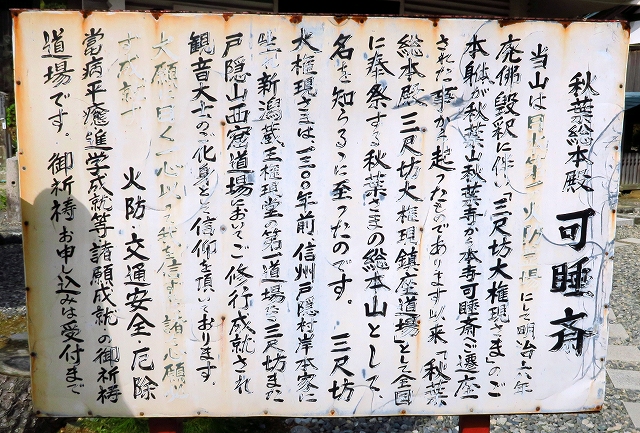 秋葉総本殿 可睡斉
当山は 日本 火防 にして明治六年
廃佛毀釈に伴い「三尺坊大権現さま」のご
本躰が秋葉山秋葉寺から本寺可睡斎へご遷座
された事から起ったものであります以来「秋葉
総本殿三尺坊大権現鎮座道場」として全国
に奉祭する秋葉さまの総本山として、
名を知らるゝに至ったのです。 三尺坊
大権現さまは一三〇〇年前、信州戸隠村岸本家に
生れ新潟蔵王権現堂の第一道場 三尺坊また
戸隠山西座道場においてご修行成就され
観音大士のご化身として信仰を頂いております。
大願に曰く一心 我を信ず 諸 願
す成就
火防・交通安全・厄除
當病平癒進学成就等諸願成就の御祈祷
道場です。御祈祷お申し込みは受付まで